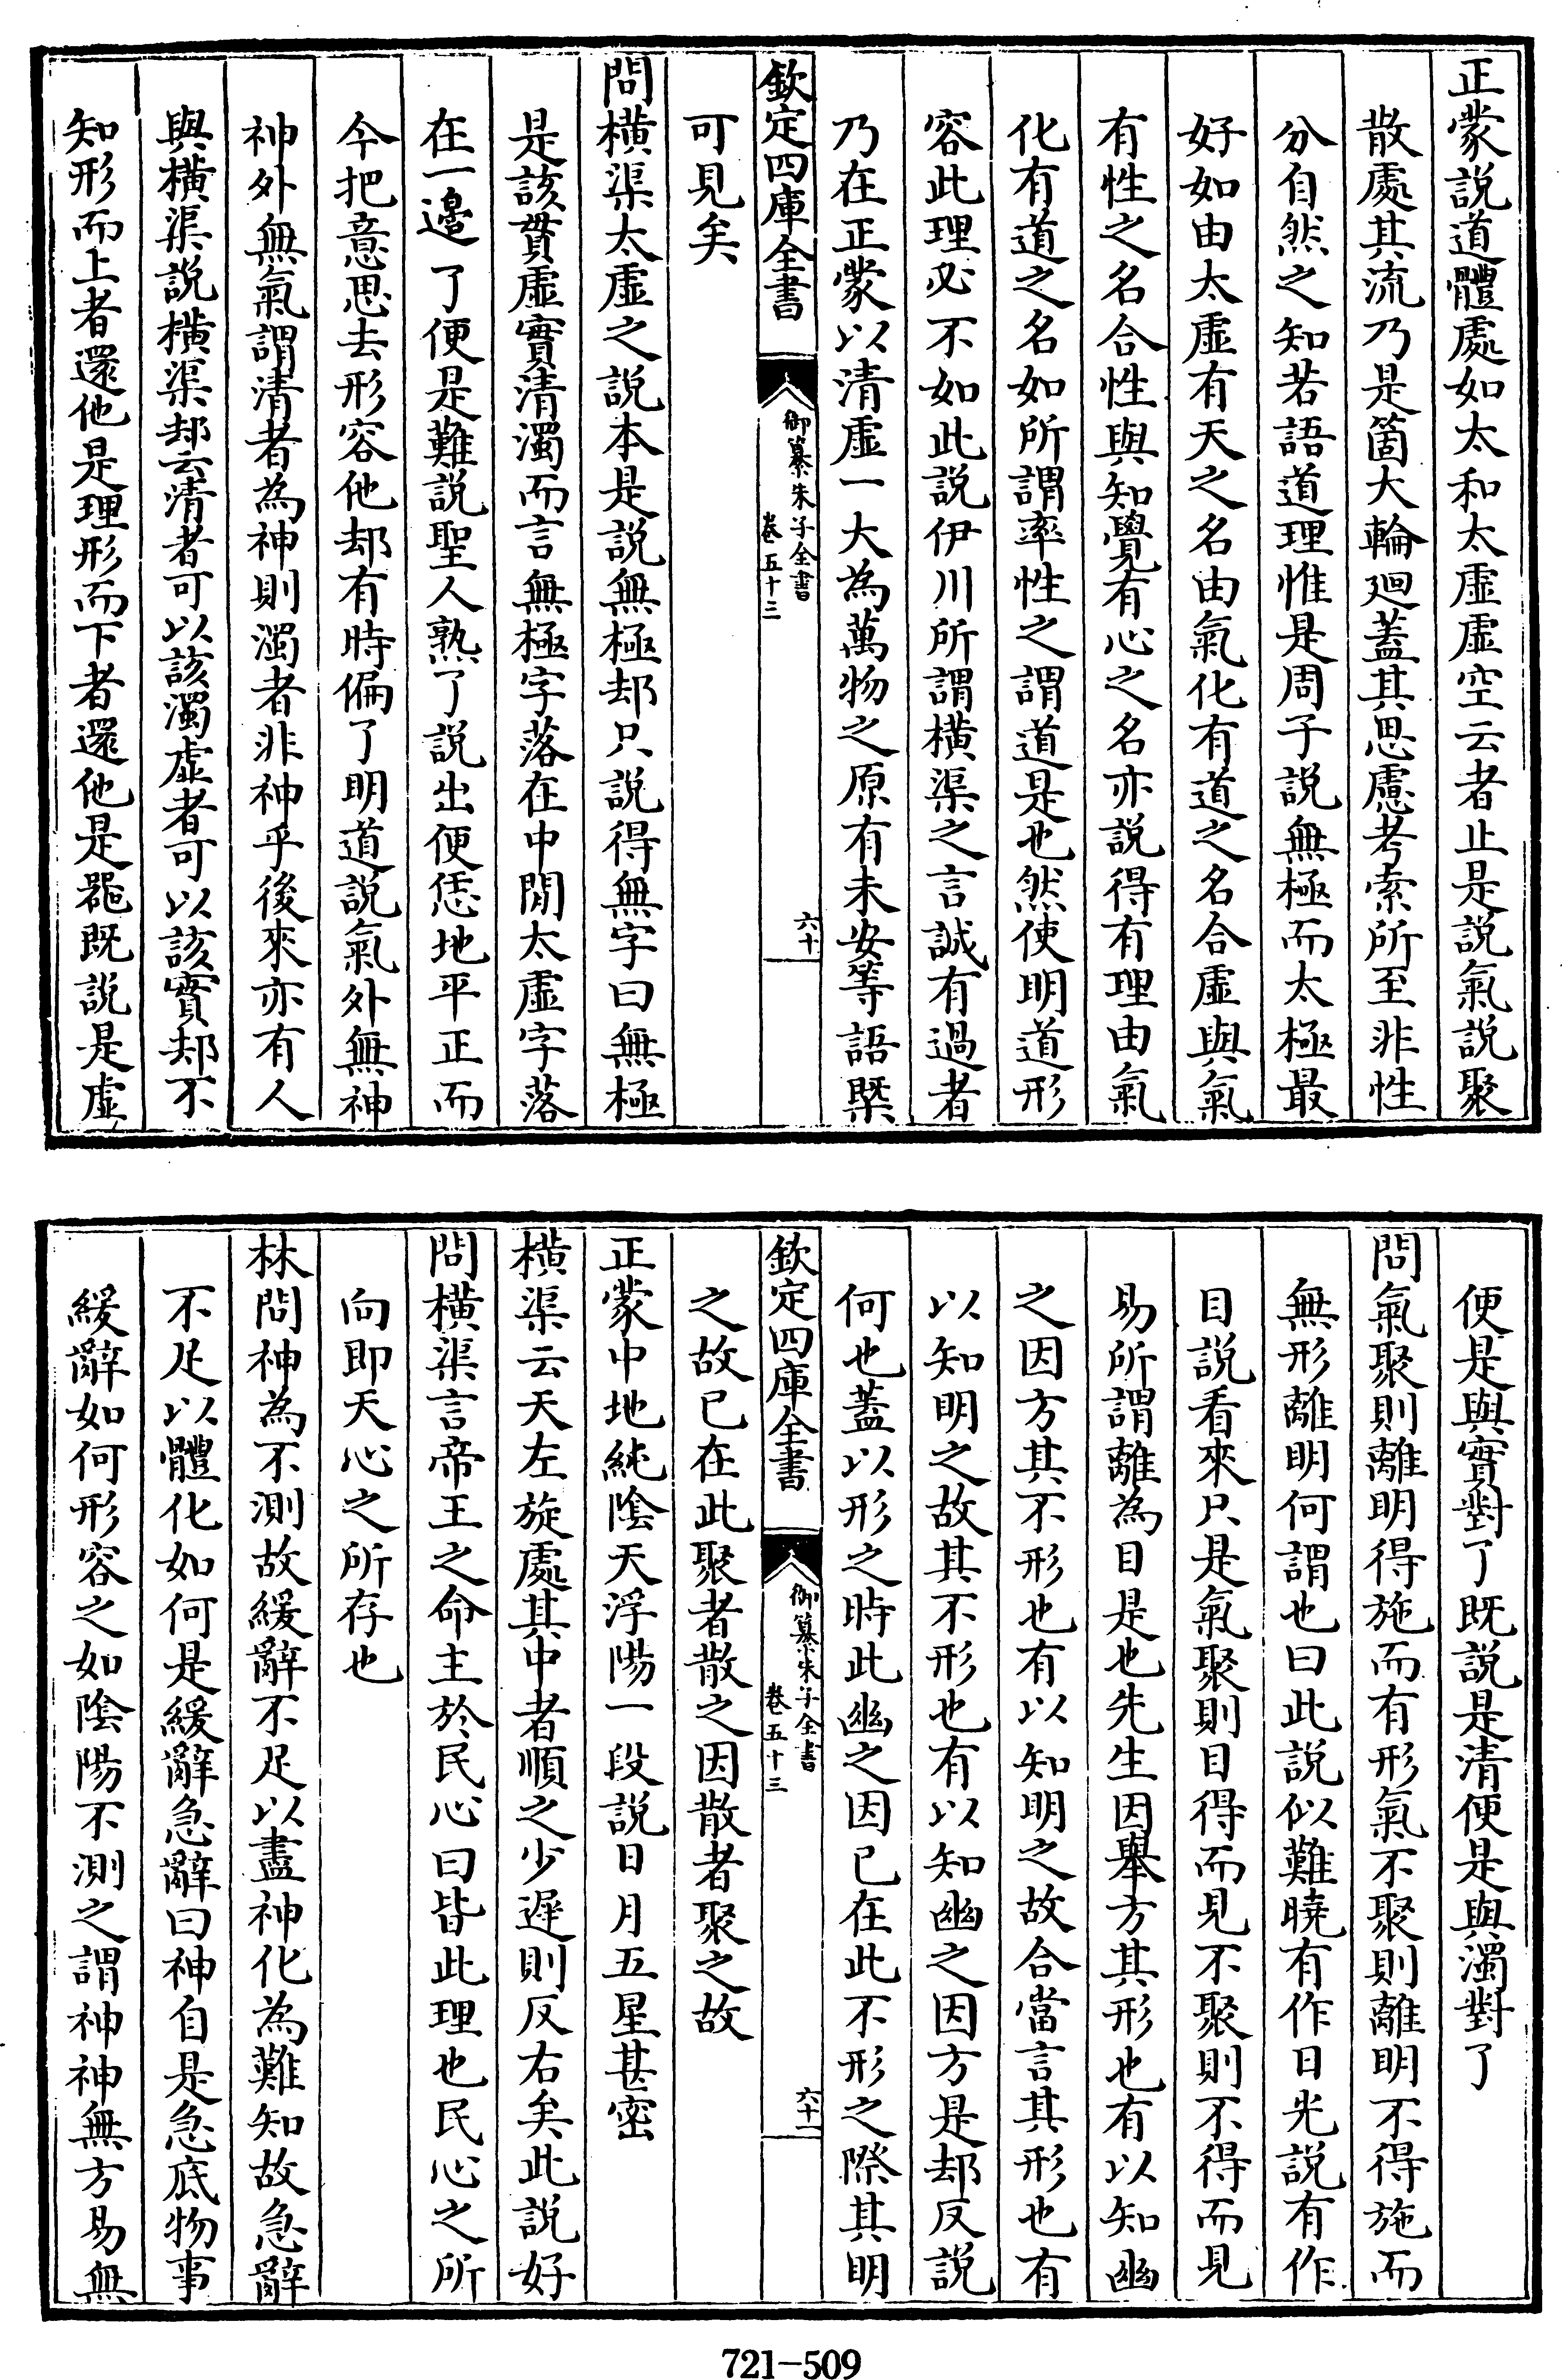 正蒙説道體處如太和太虛虛空云者止是説氣説聚
散處其流乃是箇大輪廻蓋其思慮考索所至非性
分自然之知若語道理惟是周子説無極而太極最
好如由太虛有天之名由氣化有道之名合虛與氣
有性之名合性與知覺有心之名亦説得有理由氣
化有道之名如所謂率性之謂道是也然使明道形
容此理必不如此説伊川所謂橫渠之言誠有過者
乃在正蒙以清虛一大為萬物之原有未安等語槩
欽定四庫全書
御纂朱子全書
卷五十三
六十
可見矣
問橫渠太虛之説本是説無極却只説得無字曰無極
是該貫虛實清濁而言無極字落在中閒太虛字落
在一邊了便是難説聖人熟了説出便恁地平正而
今把意思去形容他却有時偏了明道説氣外無神
神外無氣謂清者為神則濁者非神乎後來亦有人
與橫渠説橫渠却云清者可以該濁虛者可以該實却不
知形而上者還他是理形而下者還他是器既説是虛
便是與實對了既説是清便是與濁對了
問氣聚則離明得施而有形氣不聚則離明不得施而
無形離明何謂也曰此説似難曉有作日光説有作
目説看來只是氣聚則目得而見不聚則不得而見
易所謂離為目是也先生因舉方其形也有以知幽
之因方其不形也有以知明之故合當言其形也有
以知明之故其不形也有以知幽之因方是却反説
何也蓋以形之時此幽之因已在此不形之際其明
欽定四庫全書
御纂朱子全書
卷五十三
六十一
之故已在此聚者散之因散者聚之故
正蒙中地純陰天浮陽一段説日月五星甚密
橫渠云天左旋處其中者順之少遲則反右矣此説好
問橫渠言帝王之命主於民心曰皆此理也民心之所
向即天心之所存也
林問神為不測故緩辭不足以盡神化為難知故急辭
不足以體化如何是緩辭急辭曰神自是急底物事
緩辭如何形容之如陰陽不測之謂神神無方易無
721-509